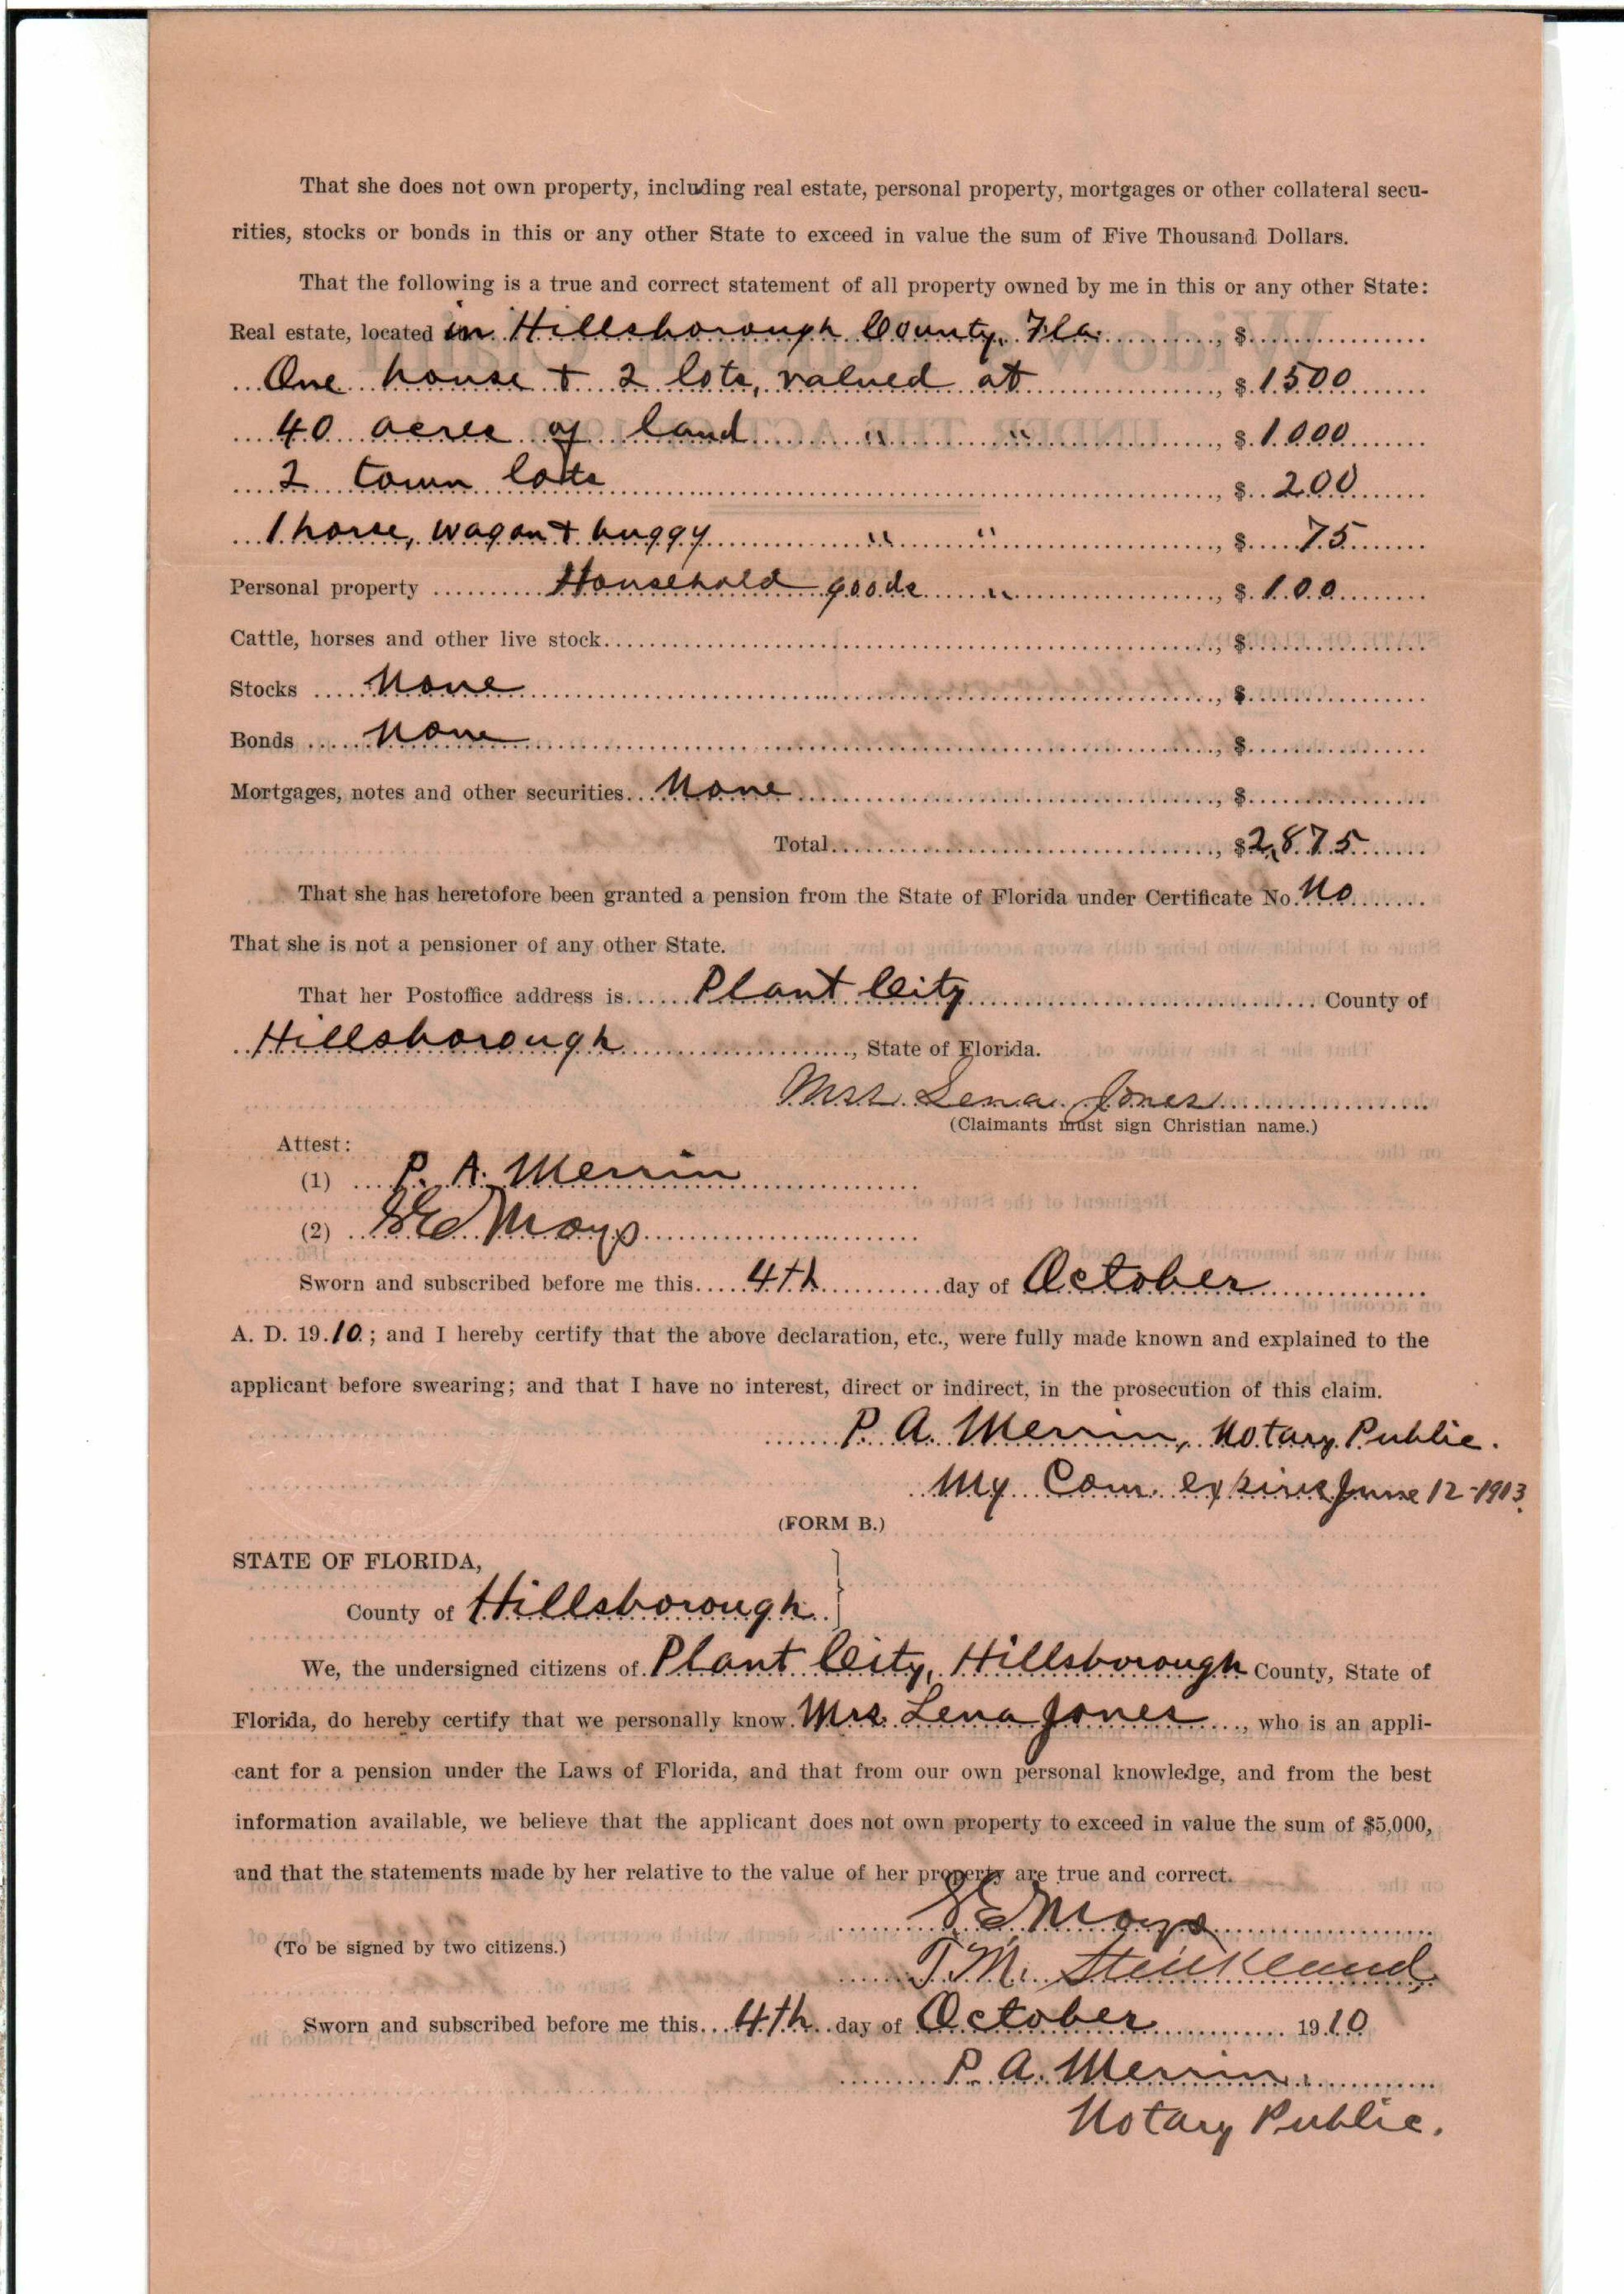 That she does not own property, including real estate, personal property, mortgages or other collateral secu-
rities, stocks or bonds in this or any other State to exceed in value the sum of Five Thousand Dollars.
That the following is a true and correct statement of all property owned by me in this or any other State:
Real estate, located in Hillsborough County, Fla. , $
One house + 2 lots, valued at , $ 1500
40 acres of land " " , $ 1000
2 town lots , $ 200
1 horse, wagon + buggy " " , $ 75
Personal property Household goods " , $ 100
Cattle, horses and other live stock , $
Stocks None , $
Bonds None , $
Mortgages, notes and other securities None , $
Total , $2,875
That she has heretofore been granted a pension from the State of Florida under Certificate No. No
That she is not a pensioner of any other State.
That her Postoffice address is Plant City County of
Hillsborough , State of Florida.
Mrs Lena Jones
(Claimants must sign Christian name.)
Attest:
(1) P. A. Merrin
(2) Mays
Sworn and subscribed before me this 4th day of October
A. D. 1910; and I hereby certify that the above declaration, etc., were fully made known and explained to the
applicant before swearing; and that I have no interest, direct or indirect, in the prosecution of this claim.
P. A. Merrin, Notary Public.
My Com. expires June 12-1913.
(FORM B.)
STATE OF FLORIDA,
County of Hillsborough }
We, the undersigned citizens of Plant City, Hillsborough County, State of
Florida, do hereby certify that we personally know Mrs Lena Jones , who is an appli-
cant for a pension under the Laws of Florida, and that from our own personal knowledge, and from the best
information available, we believe that the applicant does not own property to exceed in value the sum of $5,000,
and that the statements made by her relative to the value of her property are true and correct.
Mays
(To be signed by two citizens.)
T. M. Strickland
Sworn and subscribed before me this 4th day of October 1910
P. A. Merrin
Notary Public.